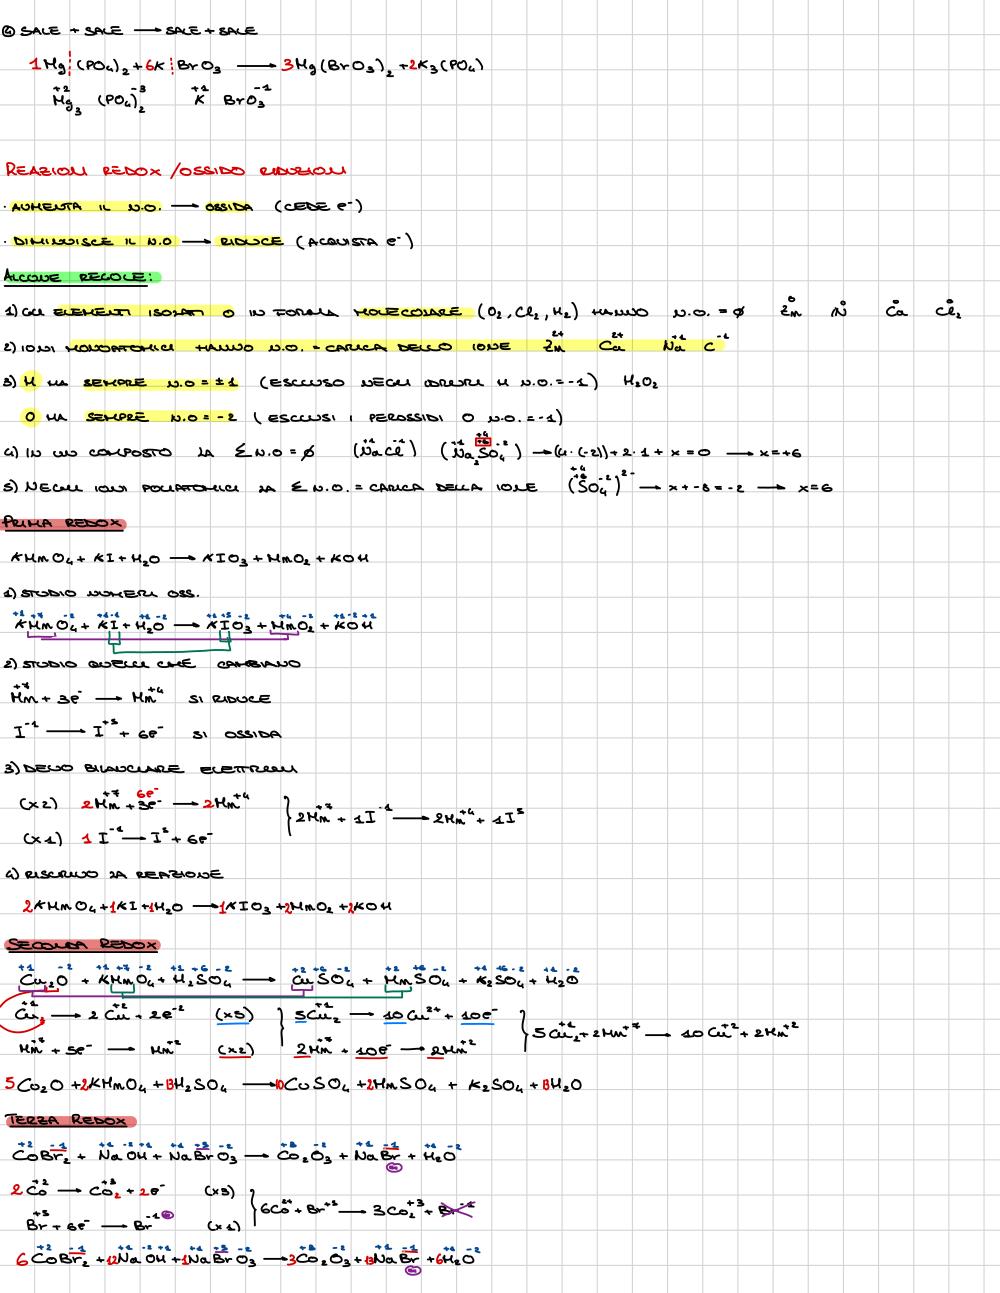 ④ SALE + SALE → SALE + SALE
1Mg (PO₄)₂ + 6K BrO₃ → 3Mg(BrO₃)₂ + 2K₃(PO₄)
Mg₃⁺² (PO₄)₂⁻³ K⁺¹ BrO₃⁻¹
REAZIONI REDOX / OSSIDO RIDUZIONI
· AUMENTA IL N.O. → OSSIDA (CEDE e⁻)
· DIMINUISCE IL N.O → RIDUCE (ACQUISTA e⁻)
ALCUNE REGOLE:
1) GLI ELEMENTI ISOLATI O IN FORMA MOLECOLARE (O₂, Cl₂, H₂) HANNO N.O. = ∅ Zn⁰ N⁰ Ca⁰ Cl₂⁰
2) IONI MONOATOMICI HANNO N.O. = CARICA DELLO IONE Zn²⁺ Ca²⁺ Na⁺¹ C⁻¹
3) H HA SEMPRE N.O = ±1 (ESCLUSO NEGLI IDRURI H N.O. = -1) H₂O₂
O HA SEMPRE N.O = -2 (ESCLUSI I PEROSSIDI O N.O. = -1)
4) IN UN COMPOSTO LA Σ N.O = ∅ (Na⁺¹Cl⁻¹) (Na₂⁺¹SO₄⁻²) → (4·(-2)) + 2·1 + x = 0 → x = +6
5) NEGLI IONI POLIATOMICI LA Σ N.O. = CARICA DELLA IONE (SO₄⁻²)²⁻ → x + -8 = -2 → x = 6
PRIMA REDOX
KMnO₄ + KI + H₂O → KIO₃ + MnO₂ + KOH
1) STUDIO NUMERI OSS.
K⁺¹Mn⁺⁷O₄⁻² + K⁺¹I⁻¹ + H₂⁺¹O⁻² → K⁺¹I⁺⁵O₃⁻² + Mn⁺⁴O₂⁻² + K⁺¹O⁻²H⁺¹
2) STUDIO QUELLI CHE CAMBIANO
Mn⁺⁷ + 3e⁻ → Mn⁺⁴ SI RIDUCE
I⁻¹ → I⁺⁵ + 6e⁻ SI OSSIDA
3) DEVO BILANCIARE ELETTRONI
(x2) 2Mn⁺⁷ + 3e⁻ 6e⁻ → 2Mn⁺⁴ } 2Mn⁺⁷ + 1I⁻¹ → 2Mn⁺⁴ + 1I⁵
(x1) 1 I⁻¹ → I⁵ + 6e⁻
4) RISCRIVO LA REAZIONE
2KMnO₄ + 1KI + 1H₂O → 1KIO₃ + 2MnO₂ + 2KOH
SECONDA REDOX
Cu₂⁺¹O⁻² + K⁺¹Mn⁺⁷O₄⁻² + H₂⁺¹S⁺⁶O₄⁻² → Cu⁺²S⁺⁶O₄⁻² + Mn⁺²S⁺⁶O₄⁻² + K₂⁺¹S⁺⁶O₄⁻² + H₂⁺¹O⁻²
Cu₂⁺¹ → 2Cu⁺² + 2e⁻² (x5) } 5Cu₂⁺¹ → 10Cu²⁺ + 10e⁻ } 5Cu₂⁺¹ + 2Mn⁺⁷ → 10Cu⁺² + 2Mn⁺²
Mn⁺⁷ + 5e⁻ → Mn⁺² (x2) 2Mn⁺⁷ + 10e⁻ → 2Mn⁺²
5Co₂O + 2KMnO₄ + 13H₂SO₄ → 10CuSO₄ + 2MnSO₄ + K₂SO₄ + 13H₂O
TERZA REDOX
Co⁺²Br₂⁻¹ + Na⁺¹O⁻²H⁺¹ + Na⁺¹Br⁺⁵O₃⁻² → Co₂⁺³O₃⁻² + Na⁺¹Br⁻¹ + H₂⁺¹O⁻²
2Co⁺² → Co₂⁺³ + 2e⁻ (x3) } 6Co²⁺ + Br⁺⁵ → 3Co₂⁺³ + Br⁻¹
Br⁺⁵ + 6e⁻ → Br⁻¹ (x1)
6Co⁺²Br₂⁻¹ + 12Na⁺¹O⁻²H⁺¹ + 1Na⁺¹Br⁺⁵O₃⁻² → 3Co₂⁺³O₃⁻² + 13Na⁺¹Br⁻¹ + 6H₂⁺¹O⁻²